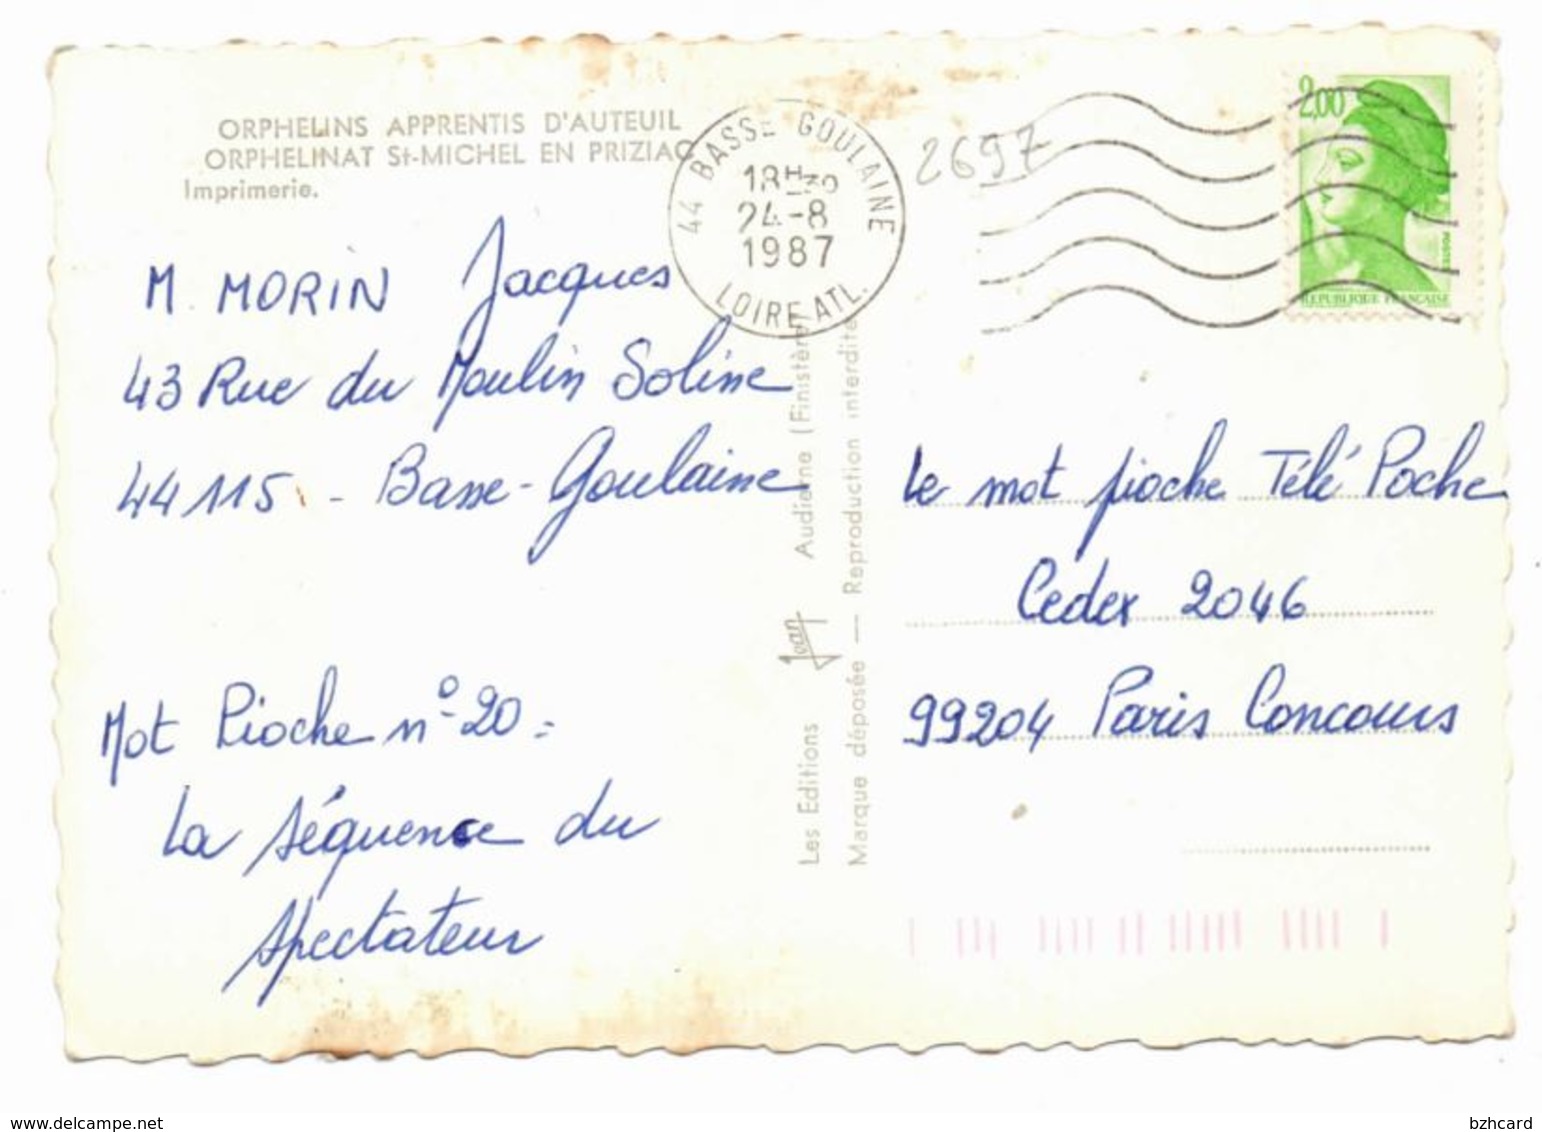 ORPHELINS APPRENTIS D'AUTEUIL
ORPHELINAT St-MICHEL EN PRIZIAC
Imprimerie.
44 BASSE GOULAINE
18H30
24-8
1987
LOIRE ATL.
2697
2,00
REPUBLIQUE FRANÇAISE
M. MORIN Jacques
43 Rue du Moulin Soline
44115 - Basse-Goulaine
Mot Pioche n° 20 =
La séquence du
spectateur
Les Editions Jean Audierne (Finistère)
Marque déposée — Reproduction interdite
Le mot pioche Télé Poche
Cedex 2046
99204 Paris Concours
www.delcampe.net
bzhcard